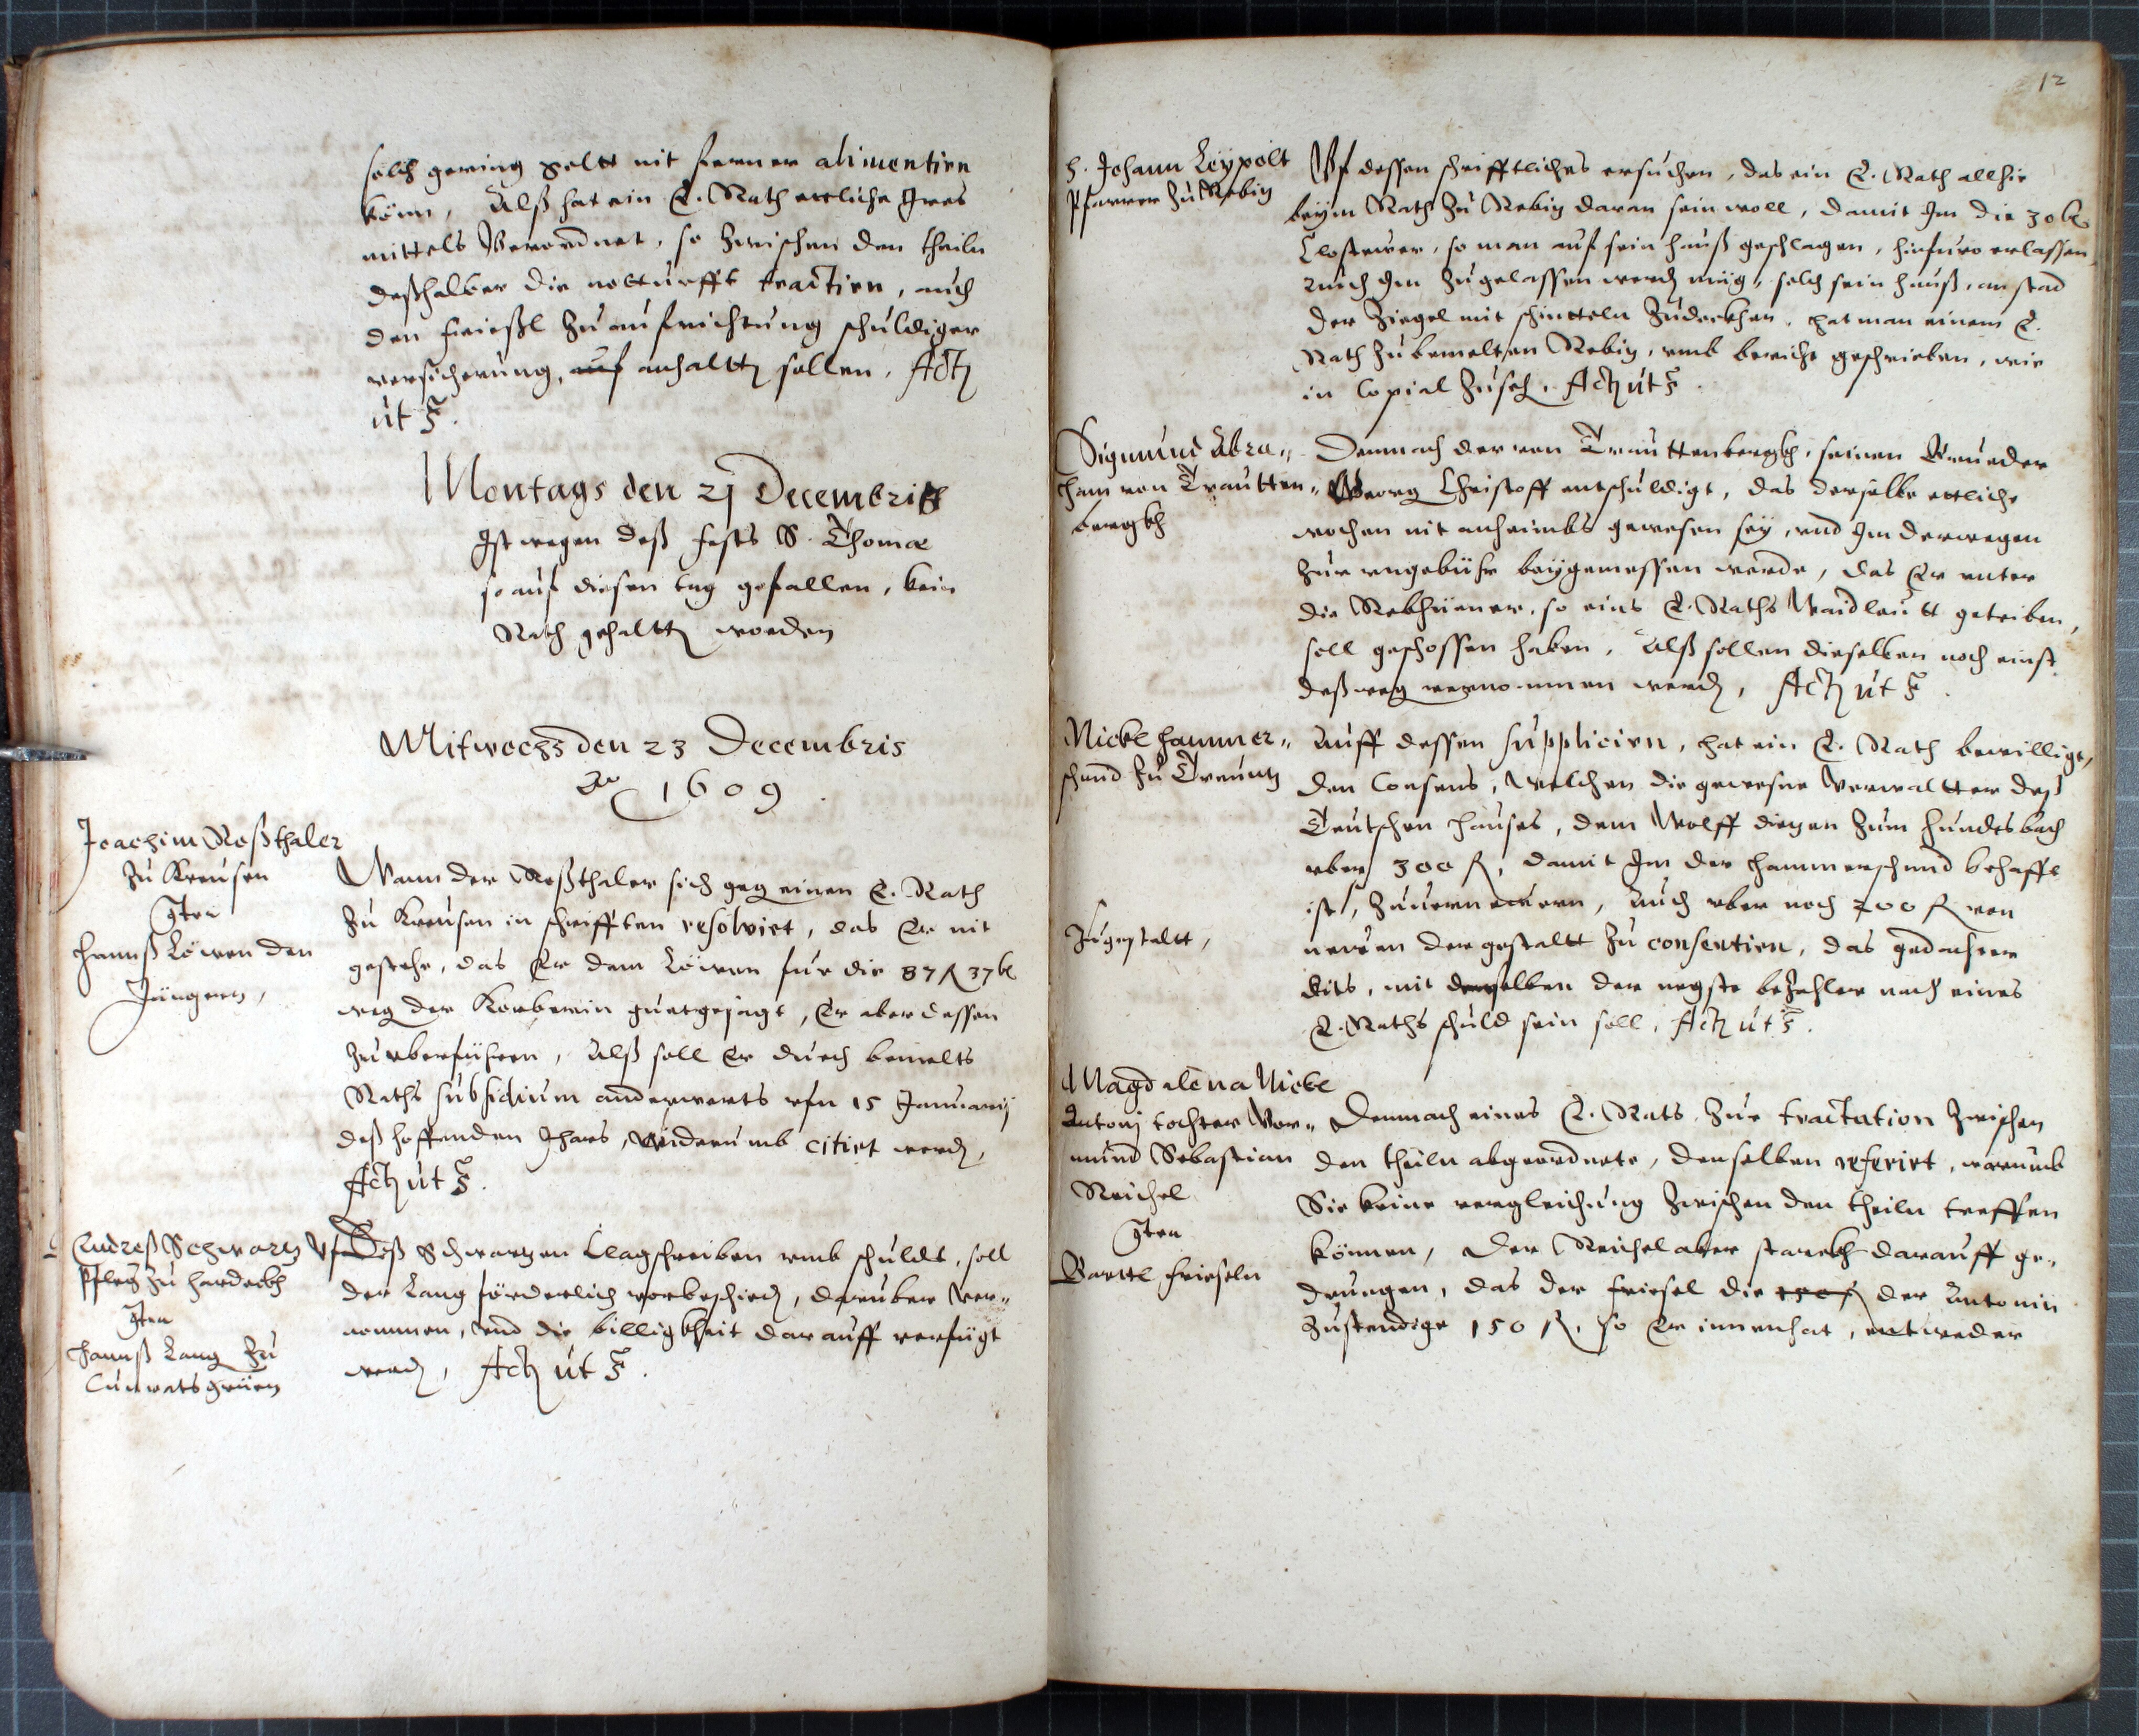 solch gering geltt nit ferner alimentirn
könn, Alß hat ein E. Rath ettliche Ires
mittels Verordnet, so zwischen den theiln
deßhalber die notturfft tractirn, auch
den Frießl zu aufrichtung schuldiger
versicherung, anhaltten sollen, Act
ut s.
Montags den 21 Decembris
Ist wegen deß fests S. Thomæ
so auf diesen tag gefallen, kein
Rath gehaltten worden
Mitwochs den 23 Decembris
Ao 1609.
Joachim Roßthaler
zu Kreusen
Jten
Hannß Löwen den
Jüngern,
Wann der Roßthaler sich geg einen E. Rath
zu Kreusen in schrifften resolvirt, das Er nit
gestehe, das Er dem Löwen für die 87 fl 37 kr
weg der Korberin guetgesagt, Er aber dessen
zu uberführen, Alß soll Er durch bemelts
Raths subsidium anderwerts ufn 15 Januarij
deß hoffenden Jhars, widerumb citirt werd,
Act ut s.
Endreß Schwartz
Pfleg zu Hardeckh
Jten
Hannß Lang zu
Cunratsgrüen
Uf Deß Schwartzen Clagschreiben umb schuldt, soll
der Lang förderlich vorbeschied, darüber Ver„
nommen, und die billigkheit darauff verfügt
werd, Act ut s.
12
H. Johann Leypolt
Pfarrer zu Rebig
Uf dessen schrifftliches ersuchen, das ein E. Rath allhie
beym Rath zu Rebig daran sein woll, damit Jm die 30 kr
Clostewer, so man auf sein hauß geschlagen, hinfuro erlassen,
auch Jm zugelassen werd mög, solch sein hauß, anstad
der Ziegel mit schintteln zudeckhen, hat man einem E.
Rath zu bemelten Rebig, umb bericht geschrieben, wie
in Copial zuseh. Act ut s.
Sigmund Abra„
ham von Trautten„
bergkh
Demnach der von Trauttenbergkh, seinen Brueder
Georg Christoff entschuldigt, das derselbe ettliche
wochen nit anheimbs gewesen sey, und Jm derwegen
zur ungebühr beygemessen werde, das Er unter
die Rebhüener, so eins E. Raths Waidleutt getriben,
soll geschossen haben, Alß sollen dieselben noch einst
deßweg vernommen werd, Act ut s.
Nickl Hammer„
schmid zu Treunitz
Jngestaltt,
Auff dessen suppliciren, hat ein E. Rath bewilligt,
den Consens, welchen die gewesne Verwaltter deß
Teutschen Hauses, dem Wolff diezen zum Hundsbach
uber 300 fl, damit Jm der Hammerschmid behafft
ist, zuuerneuern, Auch uber noch 200 fl von
newen der gestaltt zu consentirn, das gedachter
dits, mit derselben der negste bezahler nach eines
E. Raths schuld sein soll, Act ut s.
Magdalena Nickl
Antonj tochter Vor„
mund Sebastian
Reichel
Jten
Barttl Frieseln
Demnach eines E. Rats zur tractation zwischen
den theiln abgeordnete, denselben referirt, warumb
Sie keine vergleichung zwischen den theiln treffen
können, Der Reichel aber starckh darauff ge„
drungen, das der Friesel die 150 fl der Antonin
zustendige 150 fl, so Er innenhat, entweder